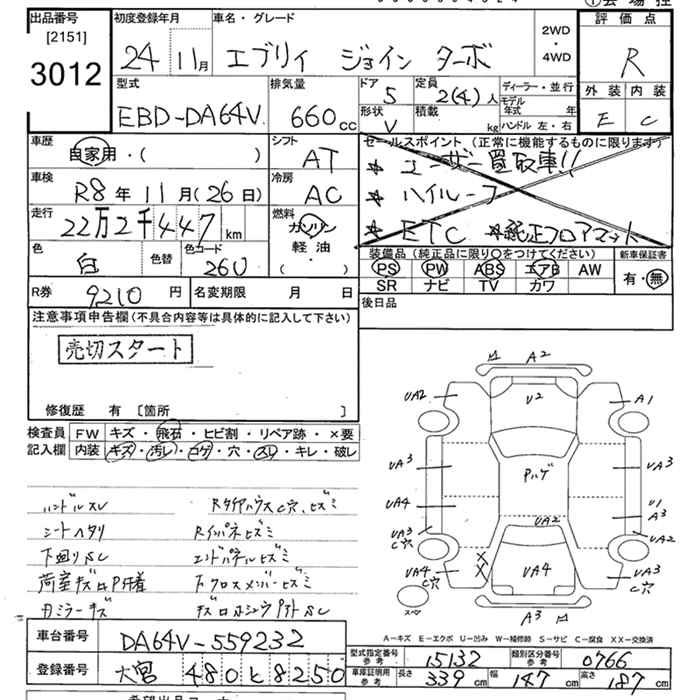 出品番号
[2151]
3012
初度登録年月
24 11月
車名・グレード
エブリィ ジョイン ターボ
2WD
・
4WD
評価点
R
外装 内装
E C
型式
EBD-DA64V
排気量
660cc
ドア
5
形状
V
定員
2(4)人
積載
kg
ディーラー・並行
モデル年式 年
ハンドル 左・右
車歴
自家用・( )
シフト
AT
車検
R8年11月(26日)
冷房
AC
走行
22万2千447km
燃料
ガソリン
軽油・
( )
色
白
色替
色コード
26U
R券
9210円
名変期限 月 日
セールスポイント(正常に機能するものに限ります)
* ユーザー買取車!!
* ハイルーフ
* ETC *純正フロアマット
装備品(純正品に限り○をつけてください)
PS PW ABS エアB AW
SR ナビ TV カワ
新車保証書
有・無
後日品
注意事項申告欄(不具合内容等は具体的に記入して下さい)
売切スタート
修復歴 有 [箇所 ]
検査員記入欄
FW キズ・飛石・ヒビ割・リペア跡・×要
内装 キズ・汚レ・コゲ・穴・スレ・キレ・破レ
ハンドルスレ
シートヘタリ
下廻りSC
Rタイヤハウス C穴、ヒズミ
Rインパネヒズミ
エンドパネルヒズミ
下クロスメンバーヒズミ
A2
UA2
U2
A1
UA3
Pハゲ
UA3
UA4
U1
A3
UA3
C穴
UA2
UA2
UA4
C穴
XX
UA4
UA3
C穴
スペ
A3
A-キズ E-エクボ U-凹み W-補修跡 S-サビ C-腐食 XX-交換済
車台番号
DA64V-559232
登録番号
大宮 480 と 8250
型式指定番号
参考
15132
類別区分番号
参考
0766
車庫証明用
参考
長さ
339cm
幅
147cm
高さ
187cm